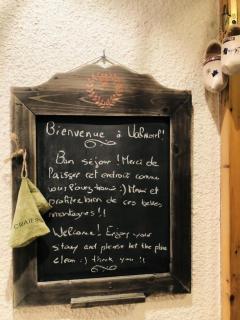 Bienvenue à Valnord!
Bon séjour! Merci de
laisser cet endroit comme
vous l'avez trouvé :) Merci et
profitez bien de ces belles
montagnes!!
Welcome! Enjoy your
stay and please let the place
clean :) thank you!!
CRAIES